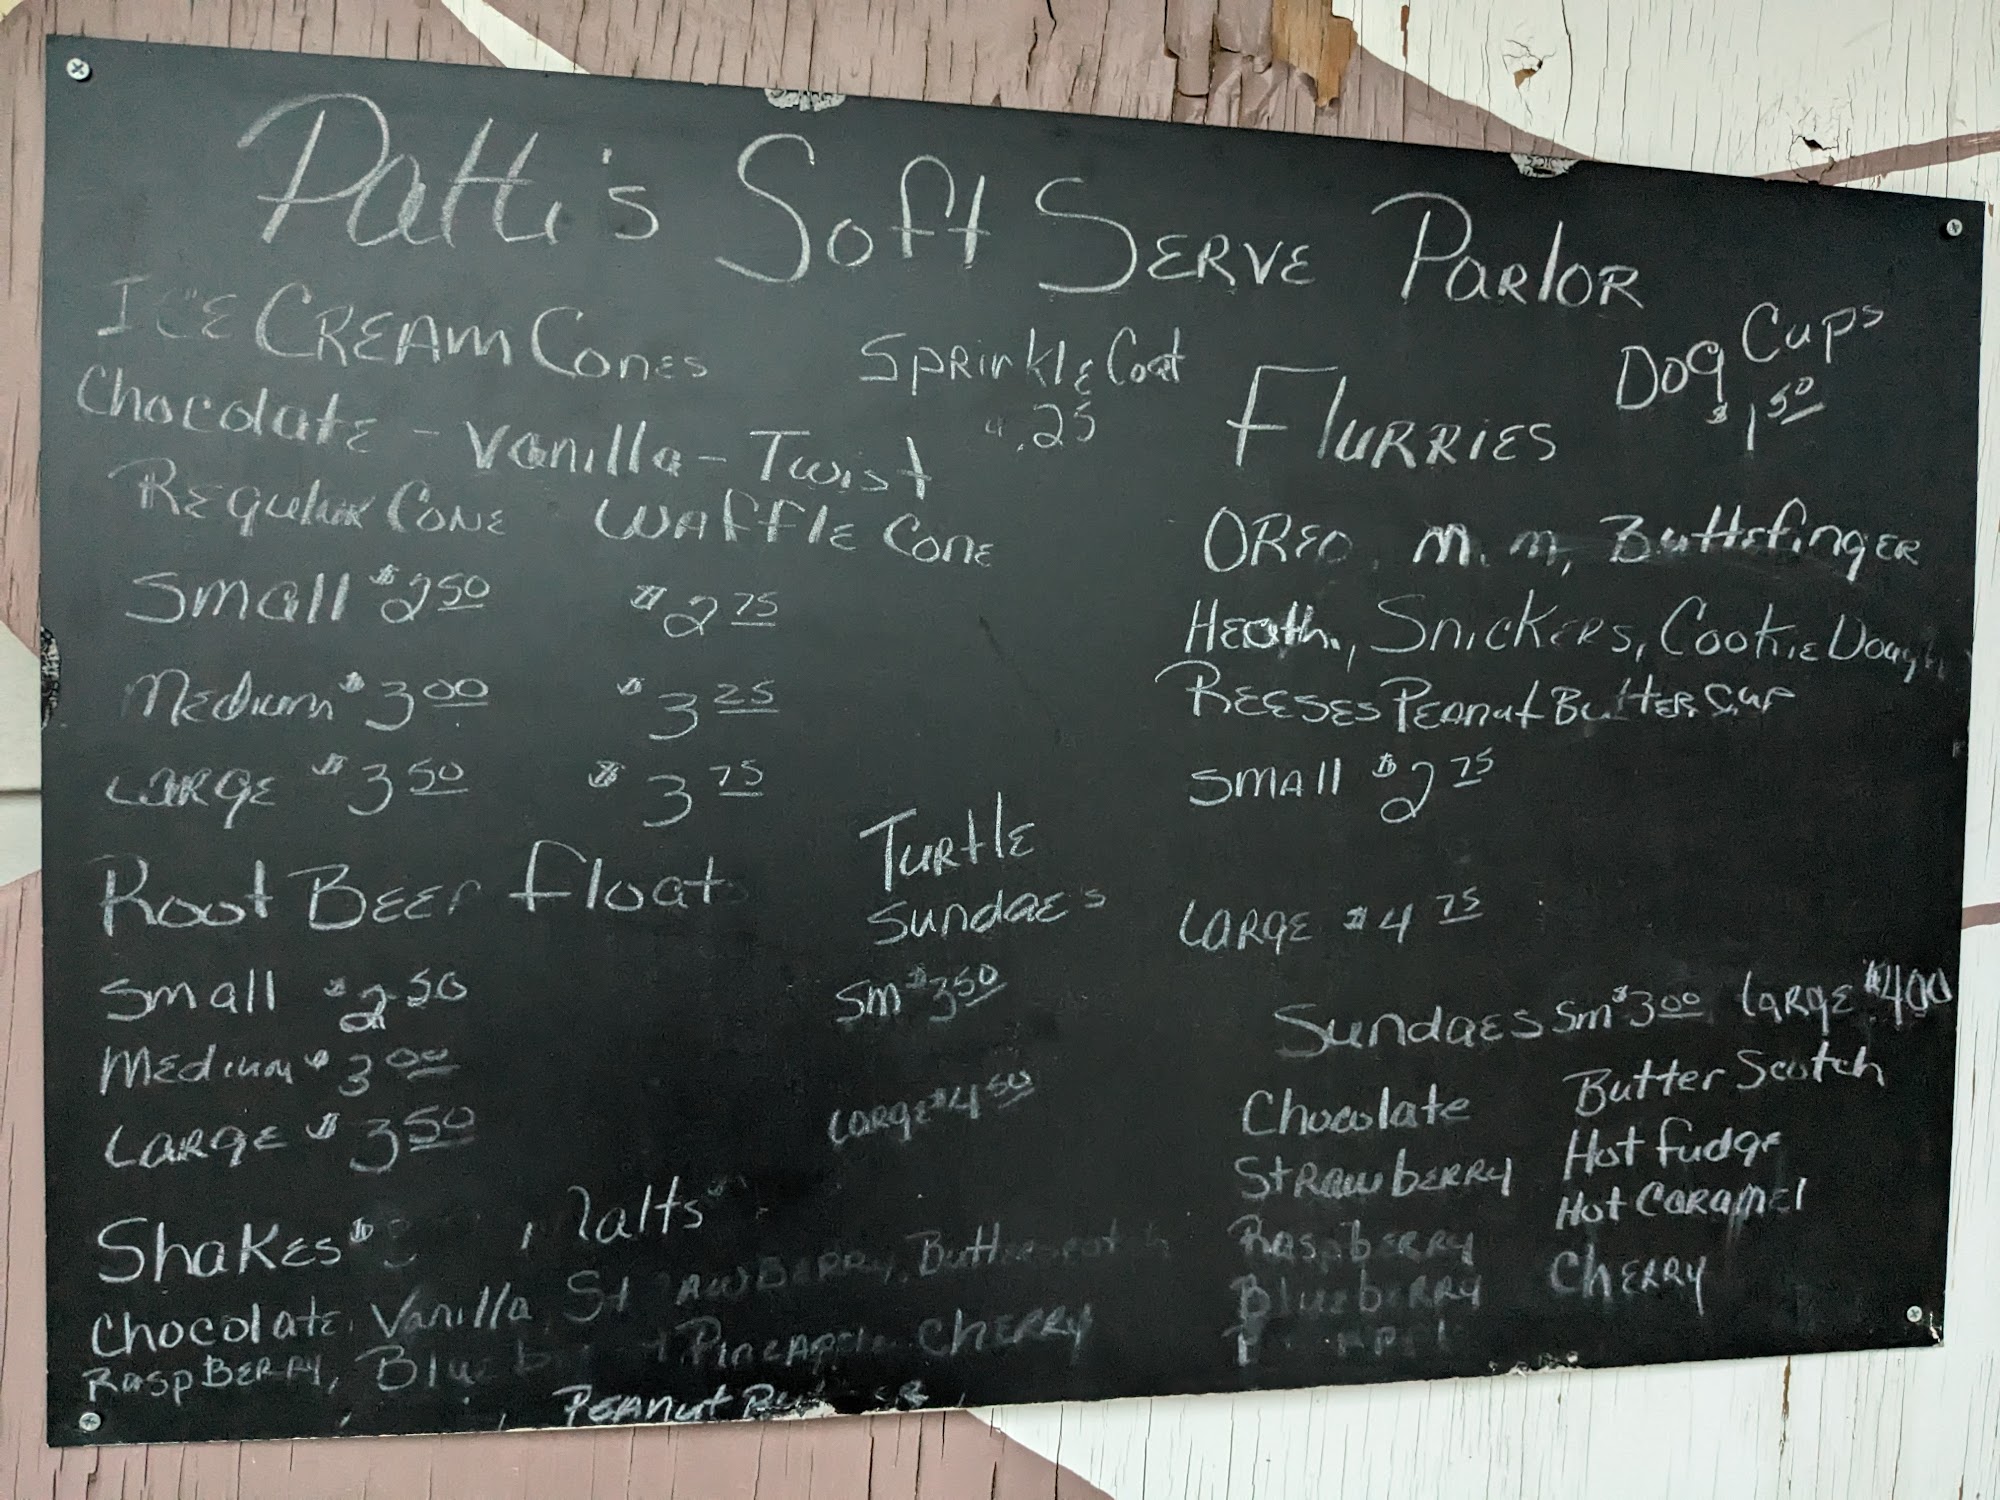 Patti's Soft Serve Parlor
Ice Cream Cones
Chocolate - Vanilla - Twist
Regular Cone Waffle Cone
Small $2.50 $2.75
Medium $3.00 $3.25
Large $3.50 $3.75
Sprinkle Coat
.25
Root Beer Float
Small $2.50
Medium $3.00
Large $3.50
Turtle
Sundaes
Sm $3.50
Large $4.50
Shakes $ Malts
Chocolate, Vanilla, Strawberry, Butterscotch
Raspberry, Pineapple Cherry
Peanut
Dog Cups
$1.50
Flurries
Oreo, M.M, Buttefinger
Heath, Snickers, Cookie Dough
Reeses Peanut Butter Cup
Small $2.75
Large $4.75
Sundaes Sm $3.00 Large $4.00
Chocolate Butter Scotch
Strawberry Hot Fudge
Raspberry Hot Caramel
Blueberry Cherry